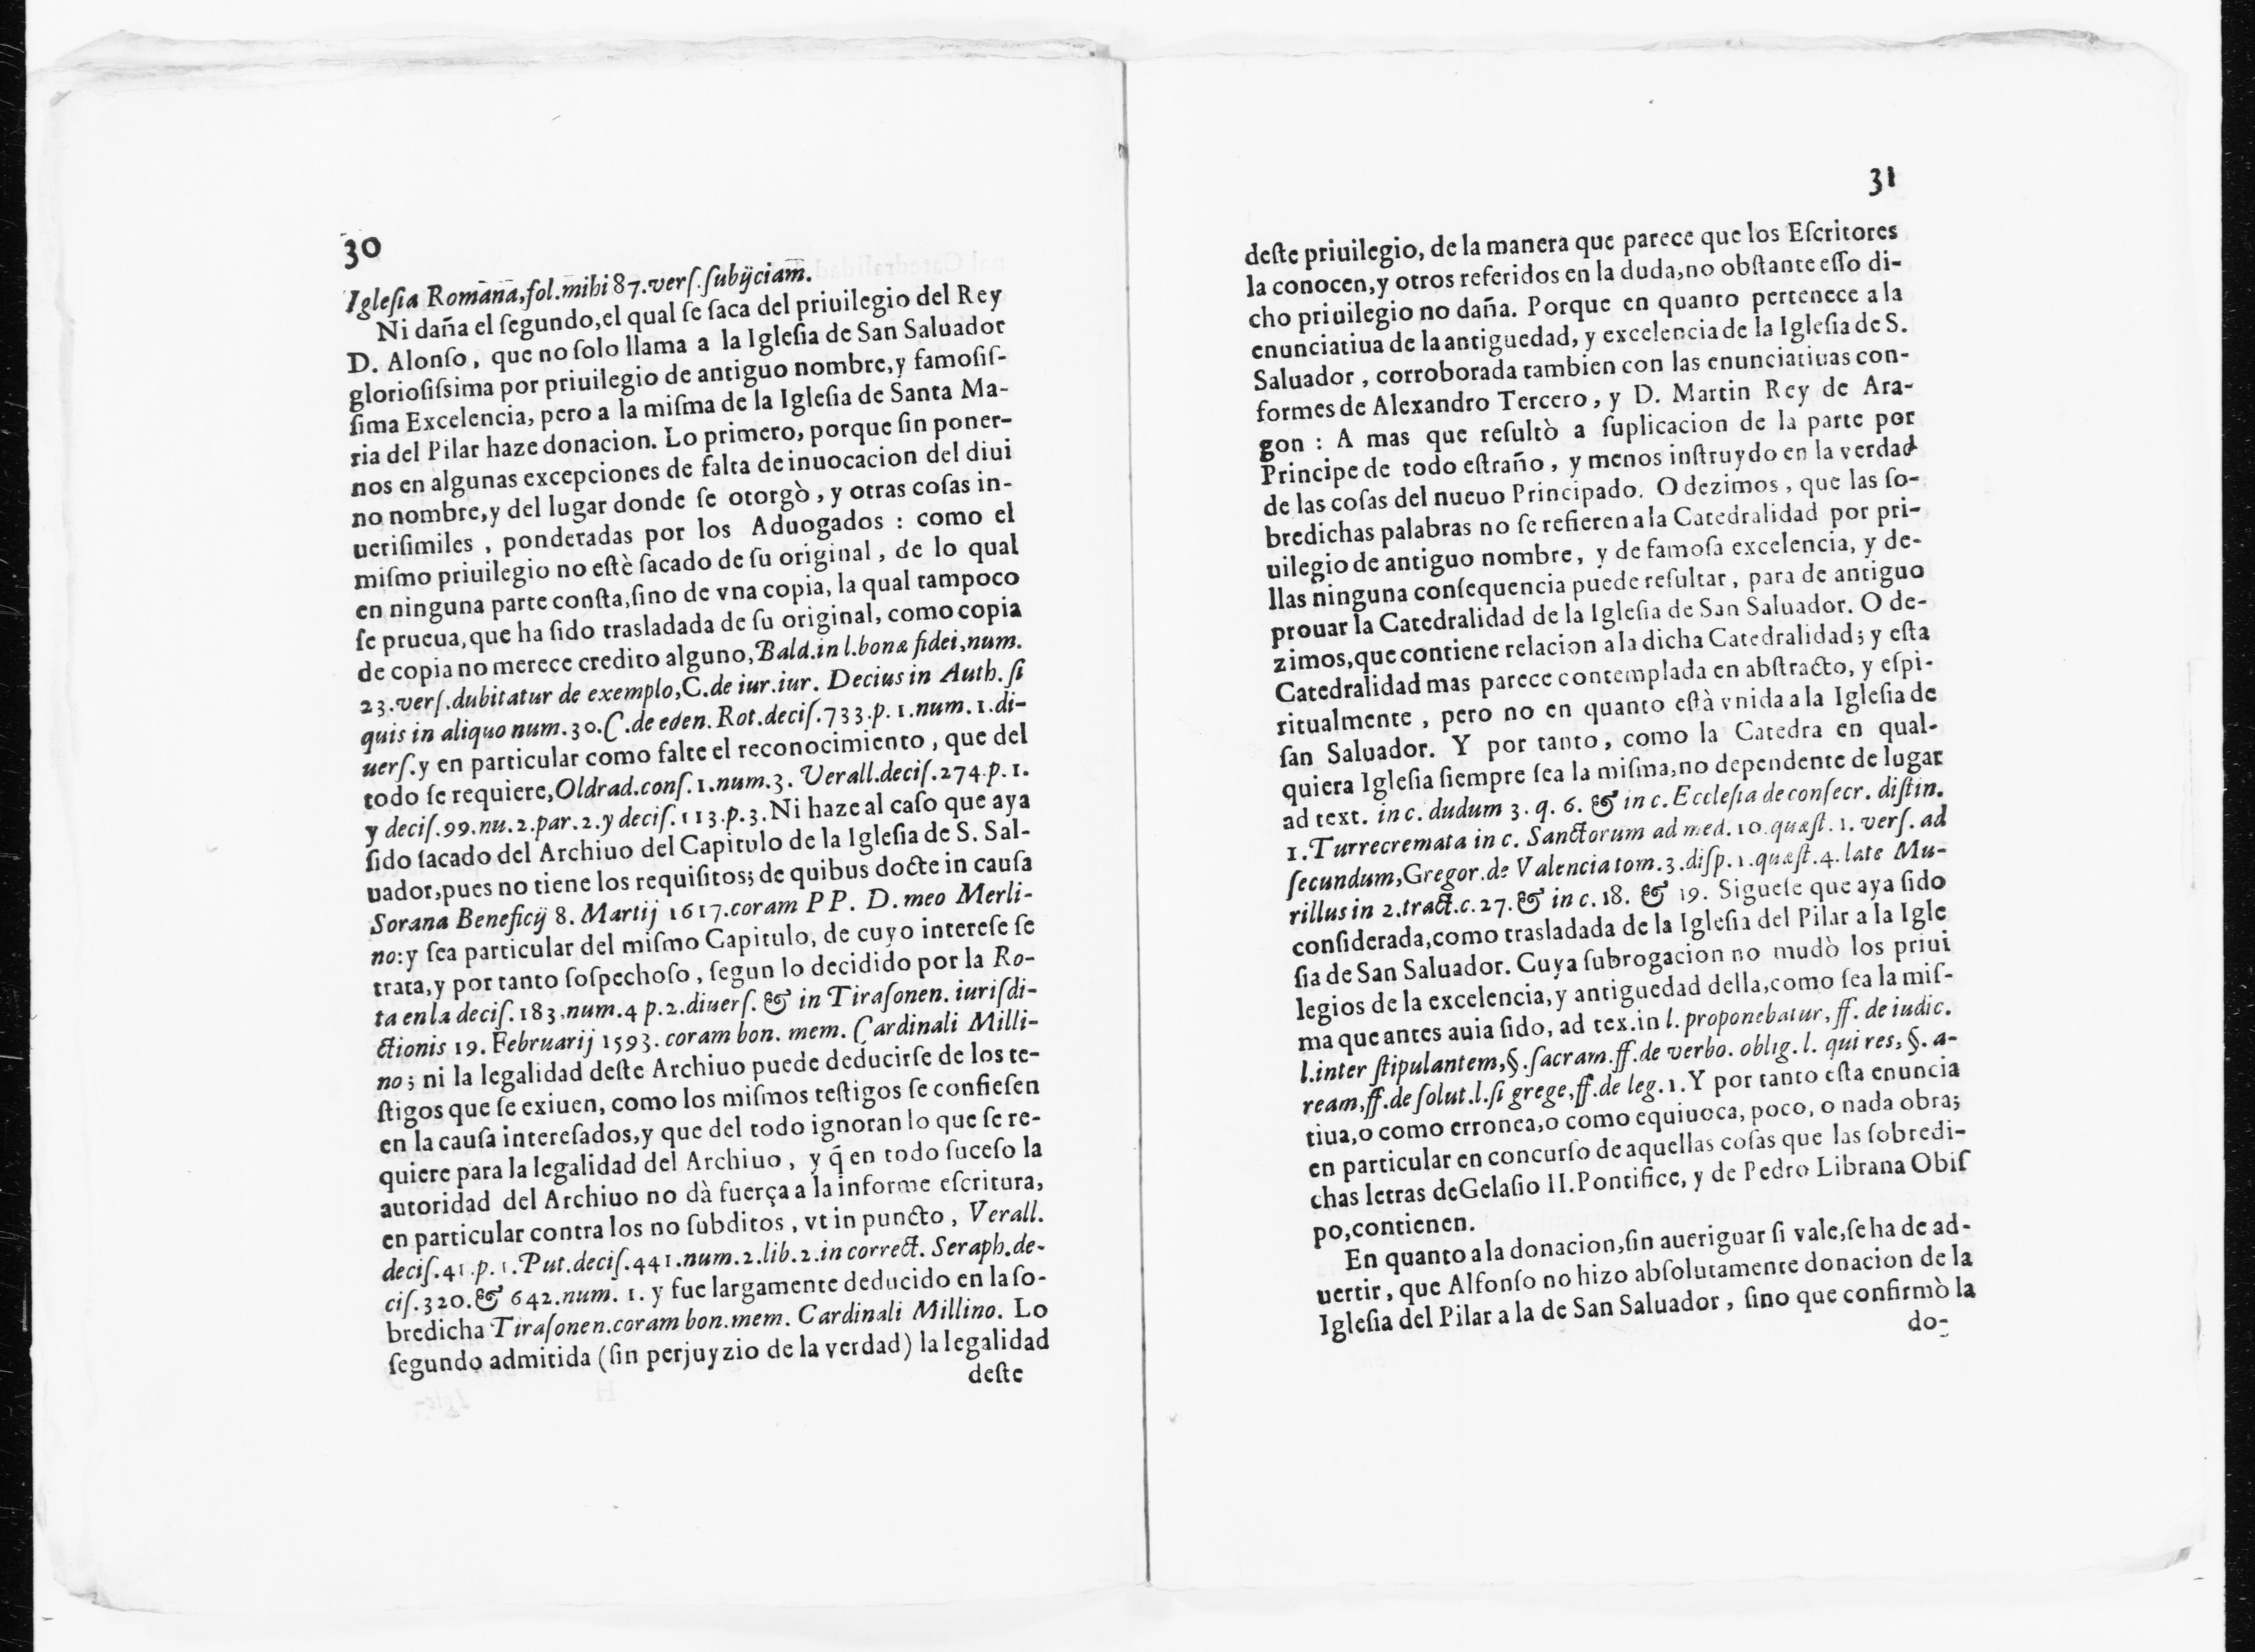 30
Igleſia Romãna,fol.mihi 87.verſ.ſubÿciam.
Ni daña el ſegundo,el qual ſe ſaca del priuilegio del Rey
D. Alonſo, que no ſolo llama a la Igleſia de San Saluador
glorioſiſsima por priuilegio de antiguo nombre,y famoſiſ-
ſima Excelencia, pero a la miſma de la Igleſia de Santa Ma-
ria del Pilar haze donacion. Lo primero, porque ſin poner-
nos en algunas excepciones de falta de inuocacion del diui
no nombre,y del lugar donde ſe otorgò, y otras coſas in-
ueriſimiles, ponderadas por los Aduogados: como el
miſmo priuilegio no eſtè ſacado de ſu original, de lo qual
en ninguna parte conſta,ſino de vna copia, la qual tampoco
ſe prueua,que ha ſido trasladada de ſu original, como copia
de copia no merece credito alguno,Bald.in l.bonæ fidei,num.
23.verſ.dubitatur de exemplo,C.de iur.iur. Decius in Auth.ſi
quis in aliquo num.30.C.de eden. Rot.deciſ.733.p.1.num.1.di-
uerſ.y en particular como falte el reconocimiento, que del
todo ſe requiere,Oldrad.conſ.1.num.3. Verall.deciſ.274.p.1.
y deciſ.99.nu.2.par.2.y deciſ.113.p.3.Ni haze al caſo que aya
ſido ſacado del Archiuo del Capitulo de la Igleſia de S. Sal-
uador,pues no tiene los requiſitos; de quibus docte in cauſa
Sorana Beneficij 8. Martij 1617.coram P P. D. meo Merli-
no:y ſea particular del miſmo Capitulo, de cuyo intereſe ſe
trata,y por tanto ſoſpechoſo, ſegun lo decidido por la Ro-
ta en la deciſ.183.num.4 p.2.diuerſ.& in Tiraſonen. iuriſdi-
ctionis 19. Februarij 1593. coram bon. mem. Cardinali Milli-
no; ni la legalidad deſte Archiuo puede deducirſe de los te-
ſtigos que ſe exiuen, como los miſmos teſtigos ſe confieſen
en la cauſa intereſados,y que del todo ignoran lo que ſe re-
quiere para la legalidad del Archiuo, y q̃ en todo ſuceſo la
autoridad del Archiuo no dà fuerça a la informe eſcritura,
en particular contra los no ſubditos, vt in puncto, Verall.
deciſ.41.p.1.Put.deciſ.441.num.2.lib.2.in correct. Seraph.de-
ciſ.320.& 642.num. 1. y fue largamente deducido en la ſo-
bredicha Tiraſonen.coram bon.mem. Cardinali Millino. Lo
ſegundo admitida (ſin perjuyzio de la verdad) la legalidad
deſte
31
deſte priuilegio, de la manera que parece que los Eſcritores
la conocen,y otros referidos en la duda,no obſtante eſſo di-
cho priuilegio no daña. Porque en quanto pertenece a la
enunciatiua de la antiguedad, y excelencia de la Igleſia de S.
Saluador, corroborada tambien con las enunciatiuas con-
formes de Alexandro Tercero, y D. Martin Rey de Ara-
gon: A mas que reſultò a ſuplicacion de la parte por
Principe de todo eſtraño, y menos inſtruydo en la verdad
de las coſas del nueuo Principado. O dezimos, que las ſo-
bredichas palabras no ſe refieren a la Catedralidad por pri-
uilegio de antiguo nombre, y de famoſa excelencia, y de-
llas ninguna conſequencia puede reſultar, para de antiguo
prouar la Catedralidad de la Igleſia de San Saluador. O de-
zimos,que contiene relacion a la dicha Catedralidad; y eſta
Catedralidad mas parece contemplada en abſtracto, y eſpi-
ritualmente, pero no en quanto eſtà vnida a la Igleſia de
ſan Saluador. Y por tanto, como la Catedra en qual-
quiera Igleſia ſiempre ſea la miſma,no dependente de lugar
ad text. in c. dudum 3. q. 6. & in c. Eccleſia de conſecr. diſtin.
1.Turrecremata in c. Sanctorum ad med. 10. quæſt. 1. verſ. ad
ſecundum,Gregor.de Valencia tom.3.diſp.1.quæſt.4. late Mu-
rillus in 2.tract.c.27.& in c.18. & 19. Sigueſe que aya ſido
conſiderada,como trasladada de la Igleſia del Pilar a la Igle
ſia de San Saluador. Cuya ſubrogacion no mudò los priui
legios de la excelencia,y antiguedad della,como ſea la miſ-
ma que antes auia ſido, ad tex.in l. proponebatur, ff. de iudic.
l.inter ſtipulantem,§.ſacram.ff.de verbo. oblig. l. qui res, §. a-
ream,ff.de ſolut.l.ſi grege,ff.de leg.1.Y por tanto eſta enuncia
tiua,o como erronea,o como equiuoca, poco, o nada obra;
en particular en concurſo de aquellas coſas que las ſobredi-
chas letras de Gelaſio II.Pontifice, y de Pedro Librana Obiſ
po,contienen.
En quanto a la donacion,ſin aueriguar ſi vale,ſe ha de ad-
uertir, que Alfonſo no hizo abſolutamente donacion de la
Igleſia del Pilar a la de San Saluador, ſino que confirmò la
do-